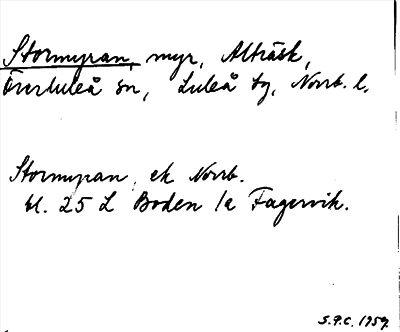 Stormyran, myr, Alträsk,
Överluleå sn, Luleå tg, Norrb. l.
Stormyran, ek Norrb.
bl. 25 L Boden /a Fagervik.
S.P.C. 1959.